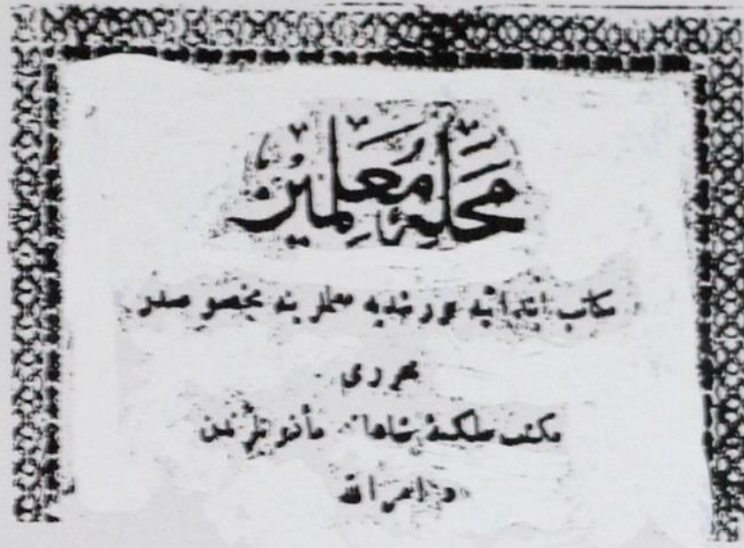 مجلهٔ معلمین
مكاتب ابتدائیه و رشدیه معلملرینه مخصوصدر
محرری
مكتب ملكیهٔ شاهانه مأذونلرندن
امرالله